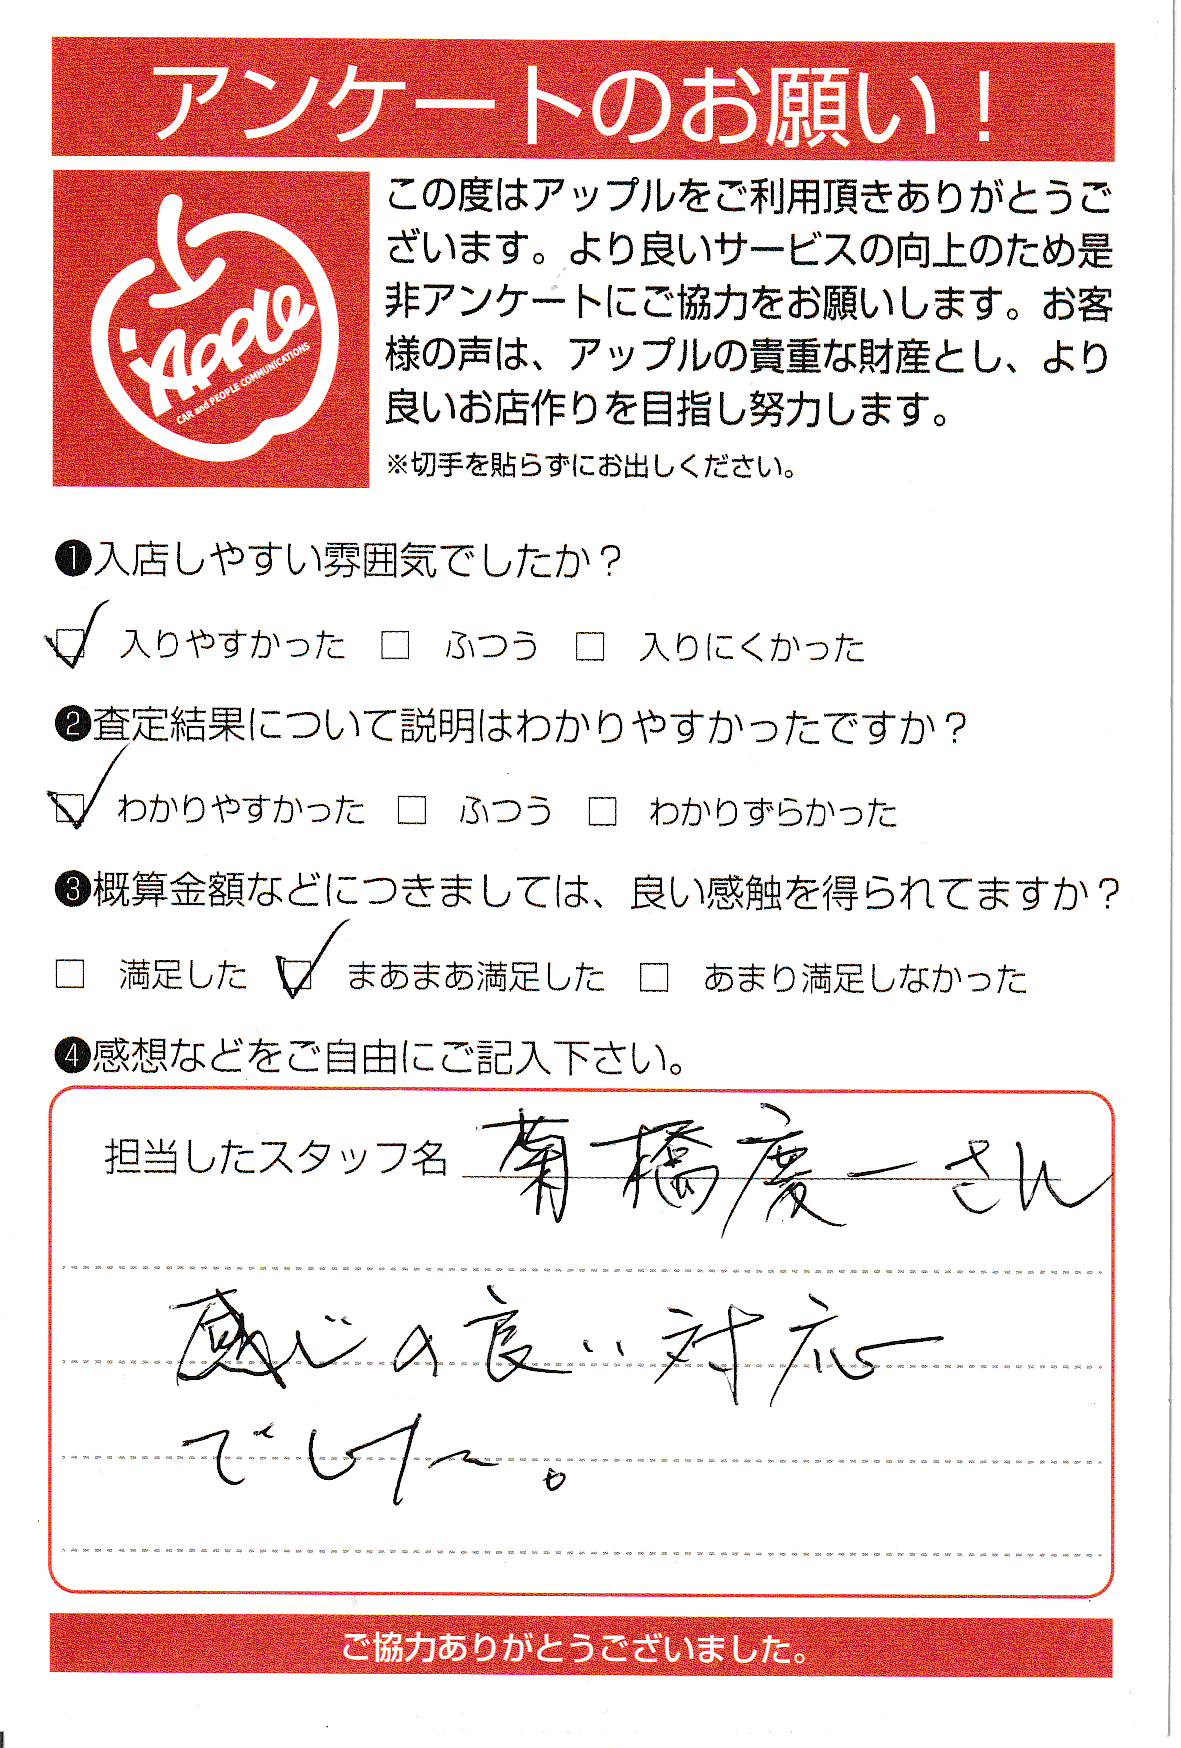 アンケートのお願い！
Apple
CAR and PEOPLE COMMUNICATIONS
この度はアップルをご利用頂きありがとうご
ざいます。より良いサービスの向上のため是
非アンケートにご協力をお願いします。お客
様の声は、アップルの貴重な財産とし、より
良いお店作りを目指し努力します。
※切手を貼らずにお出しください。
❶入店しやすい雰囲気でしたか？
☑ 入りやすかった □ ふつう □ 入りにくかった
❷査定結果について説明はわかりやすかったですか？
☑ わかりやすかった □ ふつう □ わかりずらかった
❸概算金額などにつきましては、良い感触を得られてますか？
□ 満足した ☑ まあまあ満足した □ あまり満足しなかった
❹感想などをご自由にご記入下さい。
担当したスタッフ名 菊橋慶一さん
感じの良い対応
でした。
ご協力ありがとうございました。